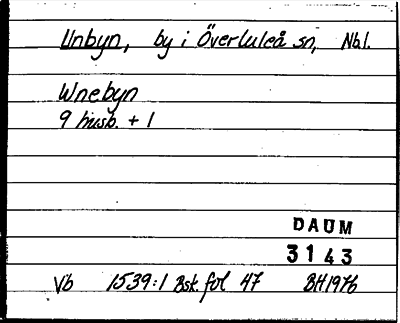 Unbyn, by i Överluleå sn, Nbl.
Wnebyn
9 husb. + 1
DAUM
3143
Vb 1539:1 Bsk. fol 47 BH1976